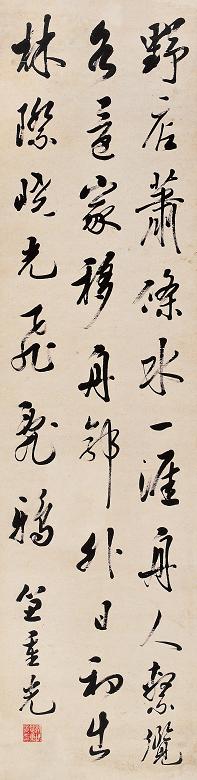 野店蕭條水一涯舟人繫纜
各還家移舟郭外日初出
林際曉光飛亂鴉
笪重光